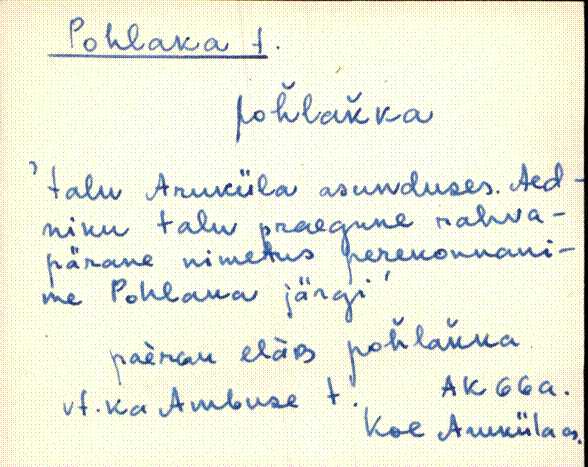 Pohlaka t.
pohlakka
'talu Aruküla asunduses. Aed-
niku talu praegune rahva-
pärane nimetus perekonnani-
me Pohlaka järgi'
eläs pohlakka
vt. ka Ambuse t. AK 66a.
Koe Aruküla as.